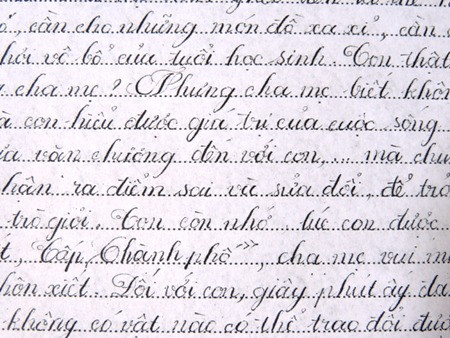 , cần cho những món đồ xa xỉ, cần
vô bổ của tuổi học sinh. Con thật
cha mẹ? Nhưng cha mẹ biết không
con hiểu được giá trị của cuộc sống
văn chương đến với con,... mà
ra điểm sai và sửa đổi, để trở
trò giỏi. Con còn nhớ, lúc con được
Cấp Thành phố", cha mẹ vui
xiết. Đối với con, giây phút ấy
không có vật nào có thể trao đổi